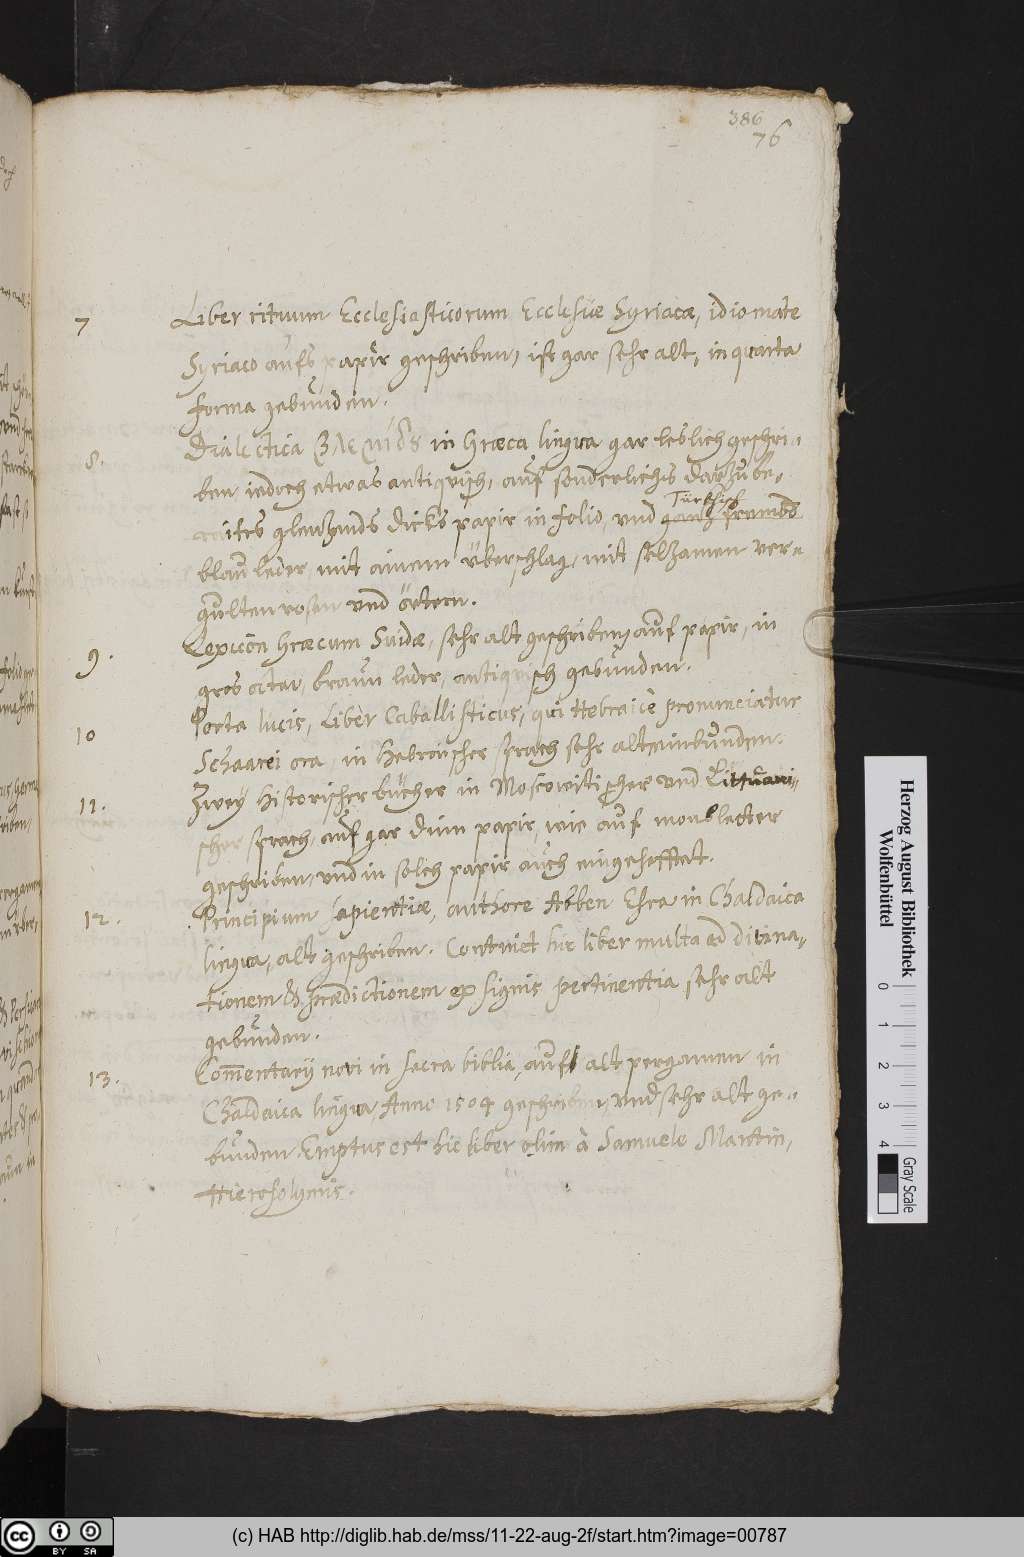 386
76
7 Liber rituum Ecclesiasticorum Ecclesiæ Syriacæ, idiomate
Syriaco aufs papir geschriben, ist gar sehr alt, in quarta
forma gebunden.
8. Dialectica in Græca lingua gar leslich geschri-
ben iedoch etwas antiquisch, auf sonderlichs darzu be-
raites glentzends dicks papir in folio, und gantz frembds
Türkhisch
blau leder, mit ainem überschlag, mit seltzamen ver-
gulten rosen und örtern.
9. Lexicon Græcum Suidæ, sehr alt geschriben, auf papir, in
gros octav, braun leder, antiquisch gebunden.
10 Porta lucis, Liber Caballisticus, qui Hebraicè pronunciatur
Schaarei ora, in Hebreischer sprach sehr alt einbunden.
11. Zwey Historischer bücher in Moscowitischer und Littuani-
scher sprach, auf gar dünn papir, wie auf
geschriben, und in solch papir auch eingehefftet.
12. Principium sapientiæ, authore Abben Esra in Chaldaica
lingua, alt geschriben. Continet hic liber multa ad divina-
tionem & prædictionem ex signis pertinentia sehr alt
gebunden.
13. Com̄entarij novi in sacra biblia, auf alt pergamen in
Chaldaica lingua, Anno 1504 geschriben, und sehr alt ge-
bunden. Emptus est hic liber olim à Samuele Martin,
Hierosolymis.
Herzog August Bibliothek
Wolfenbüttel
0 1 2 3 4
Gray Scale
cc BY SA
(c) HAB http://diglib.hab.de/mss/11-22-aug-2f/start.htm?image=00787